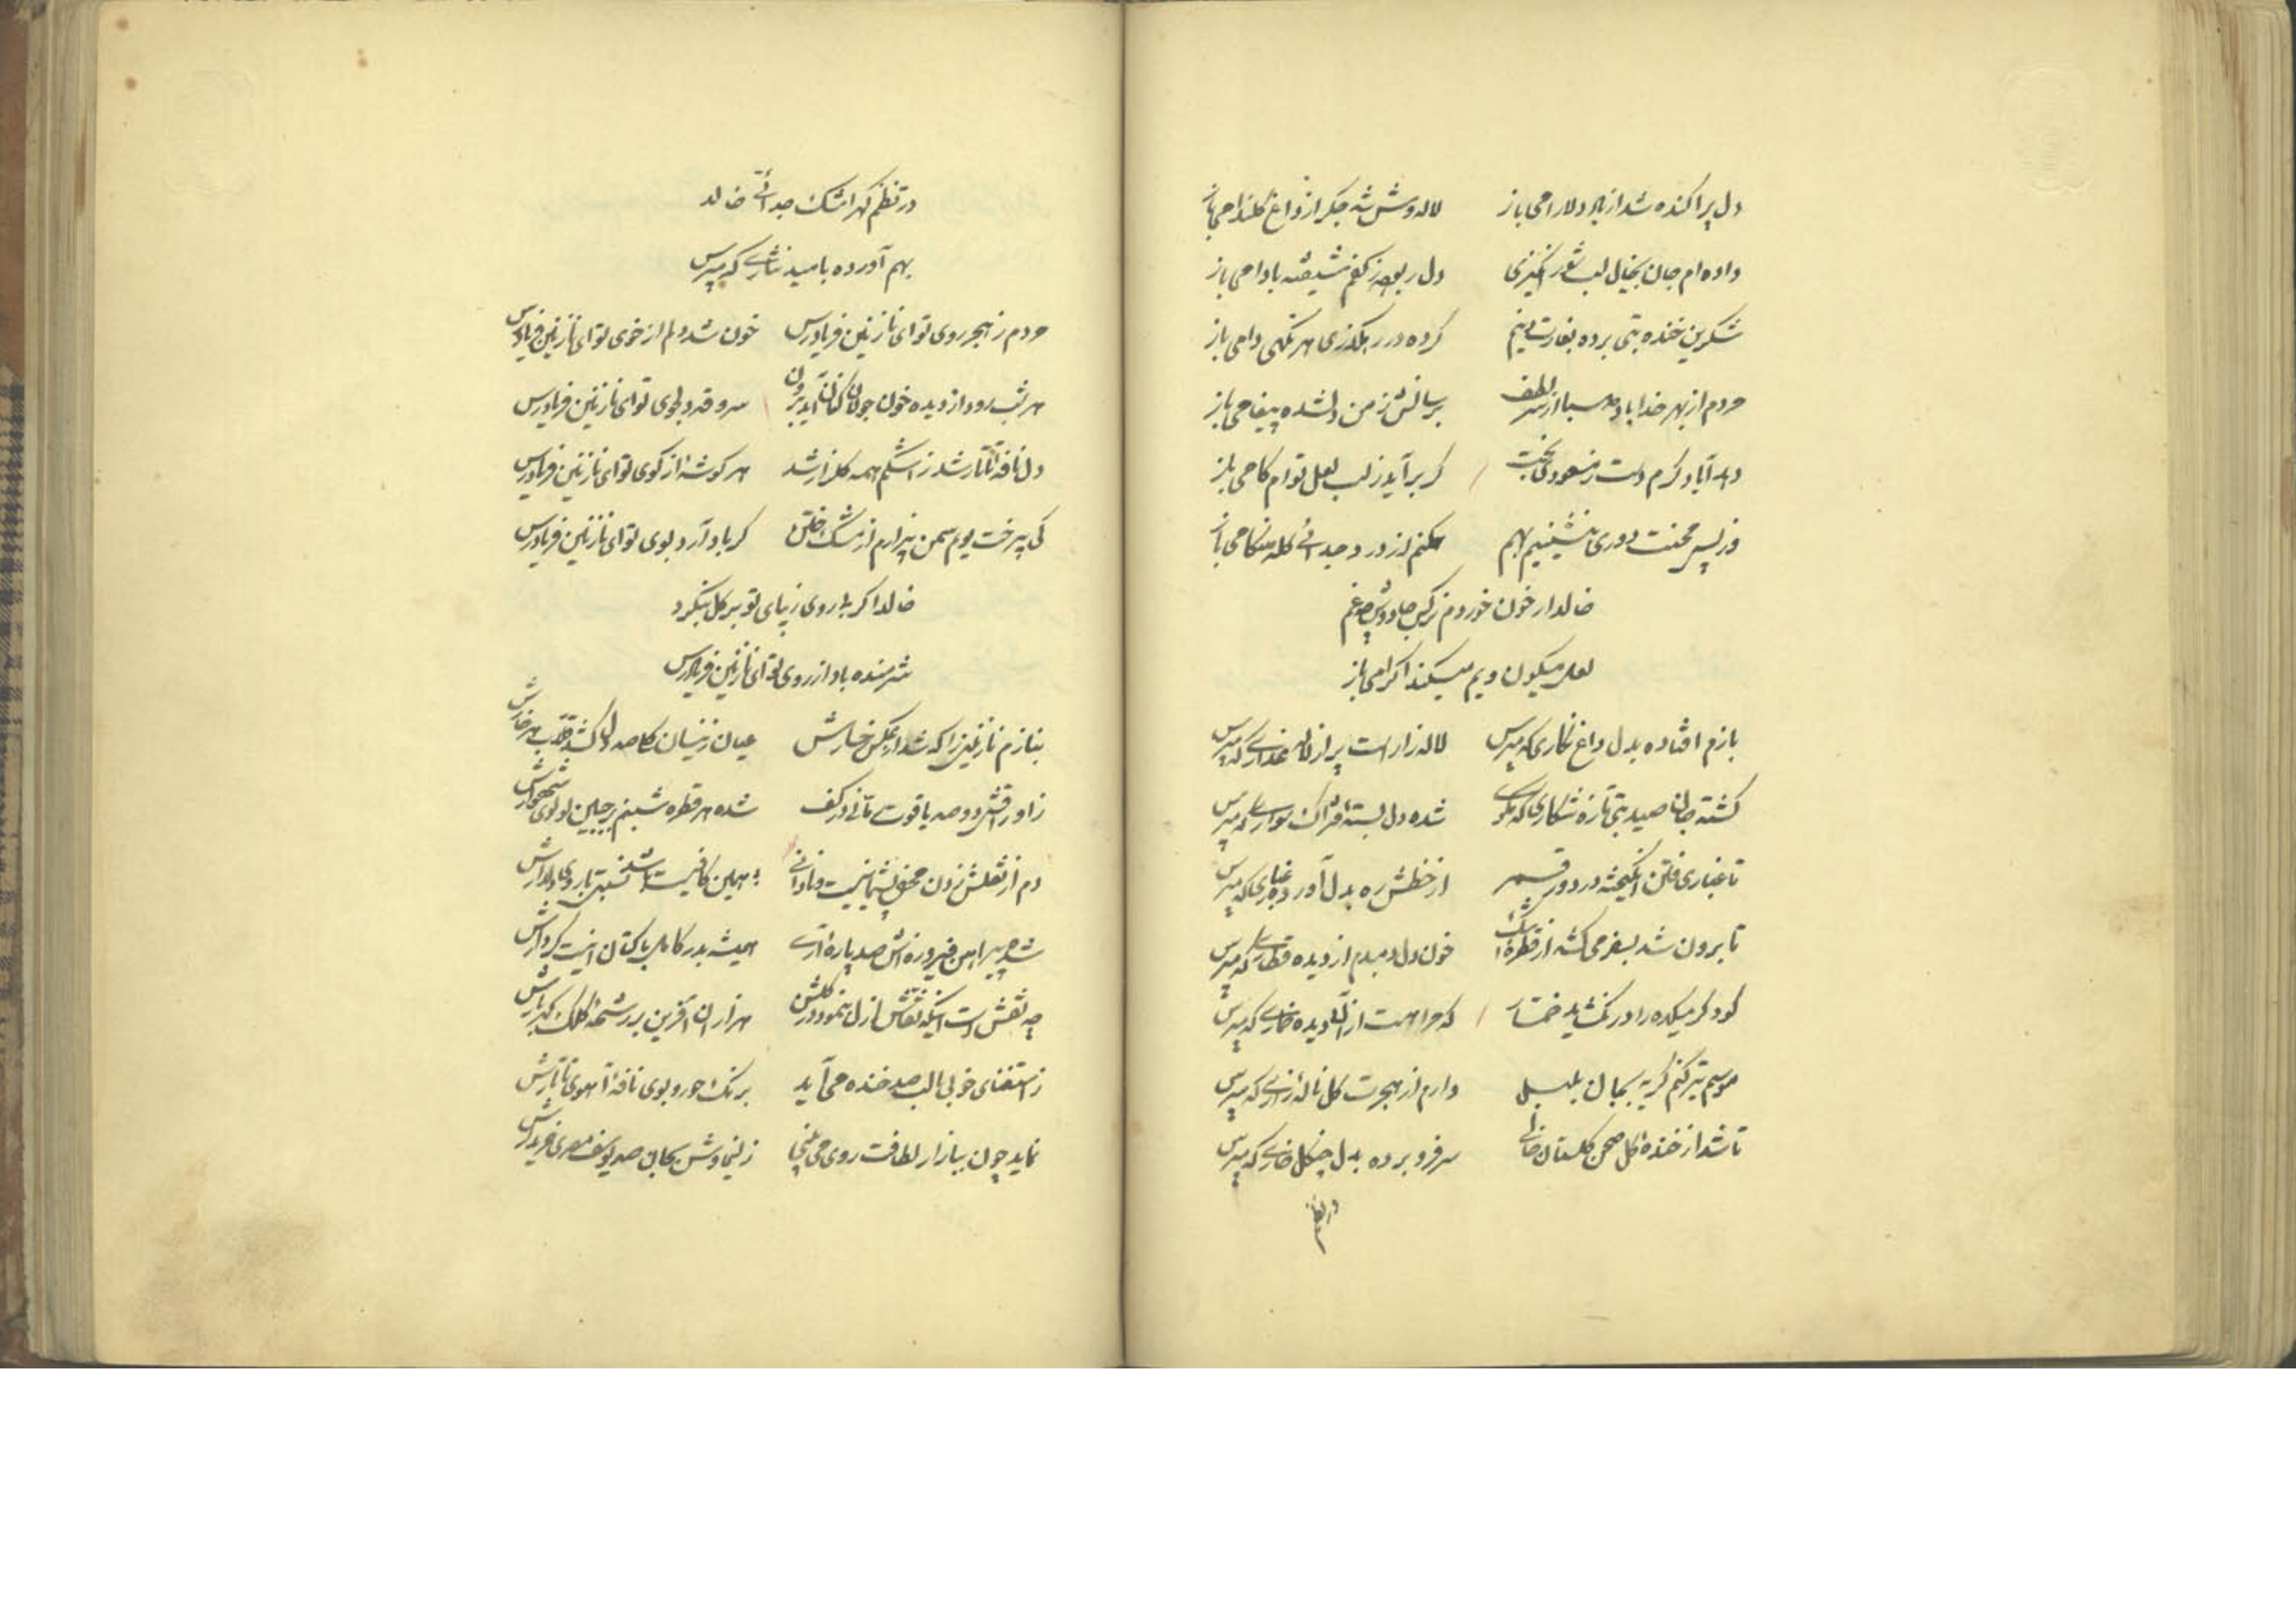 دل پراکنده شد از یاد دلارامی باز لاله وش شد جکر از داغ کلندامی باز
داده ام جان بخیال لب شور انکیزی دل ربود از کفم شیفته بادامی باز
شکرین خنده بتی برده بغارت دینم کرده در رهکذری هر نکهی دامی باز
مردم از بهر خدا باد صبا از سر لطف برسانش ز من دلشده پیغامی باز
آباد کرم دست مسعودی بخت کر برآید ز لب لعل توام کامی باز
وز پس محنت دوری بنشینیم بهم مکنم از درد جدائی کله هنکامی باز
خالد ار خون خوردم نرکس جادوش چه غم
لعل میکون ویم میکند اکرامی باز
بازم افتاده بدل داغ نکاری که مپرس لاله زار است پر از لاله عذاری که مپرس
کشته جانا صید بتی تازه شکاری که مپرس شده دل بسته فتراک سواری که مپرس
تا غباری فتن انکیخته در دور قمر از خطش ره بدل آورده غباری که مپرس
تا برون شد بسفر می کشد از قطره اشک خون دل دمبدم از دیده قطاری که مپرس
کو دکر میکده را در نکشاید خمار که مرا هست از آن دیده خماری که مپرس
موسم تیر کنم کریه بجان بلبل دارم از هجرت کل ناله زاری که مپرس
تا شد از خنده کل صحن کلستان خالی سر فرو برده بدل چنکل خاری که مپرس
در نظم
در نظم کهر اشک جدائی خالد
بهم آورده بامید نثاری که مپرس
مردم ز هجر روی تو ای نازنین فریادرس خون شد دلم از خوی تو ای نازنین فریادرس
هر شب رود از دیده خون جولان کنان آید برون سرو قد دلجوی تو ای نازنین فریادرس
دل نافه تاتار شد ز اشکم همه کلزار شد هر کوشه از کوی تو ای نازنین فریادرس
کی بی رخت بویم سمن بیزارم از مشک ختن کر باد آرد بوی تو ای نازنین فریادرس
خالد اکر با روی زیبای تو بر کل بنکرد
شرمنده باد از روی تو ای نازنین فریادرس
بنازم نازنینی را که شد از عکس رخسارش عیان زینسان
ز اوراقش دو صد یاقوت در کف شده هر قطره شبنم بر جبین لولوی شهوارش
دم از نقلش زدن محض پشیمانیست و نادانی همین کافیست
شد پیراهن فیروزه اش صد پاره همیشه بدر کامل با کتان اینست کردارش
چه نقش است اینکه نقاش ازل بنمود در کلشن هزاران آفرین بر رشحه کلک کهربارش
ز استغنای خوبی با لب صد خنده می آید برنک حور و بوی نافه آهوی تاتارش
نماید چون ببازار لطافت روی زلیخاوش بجان صد یوسف مصری خریدارش